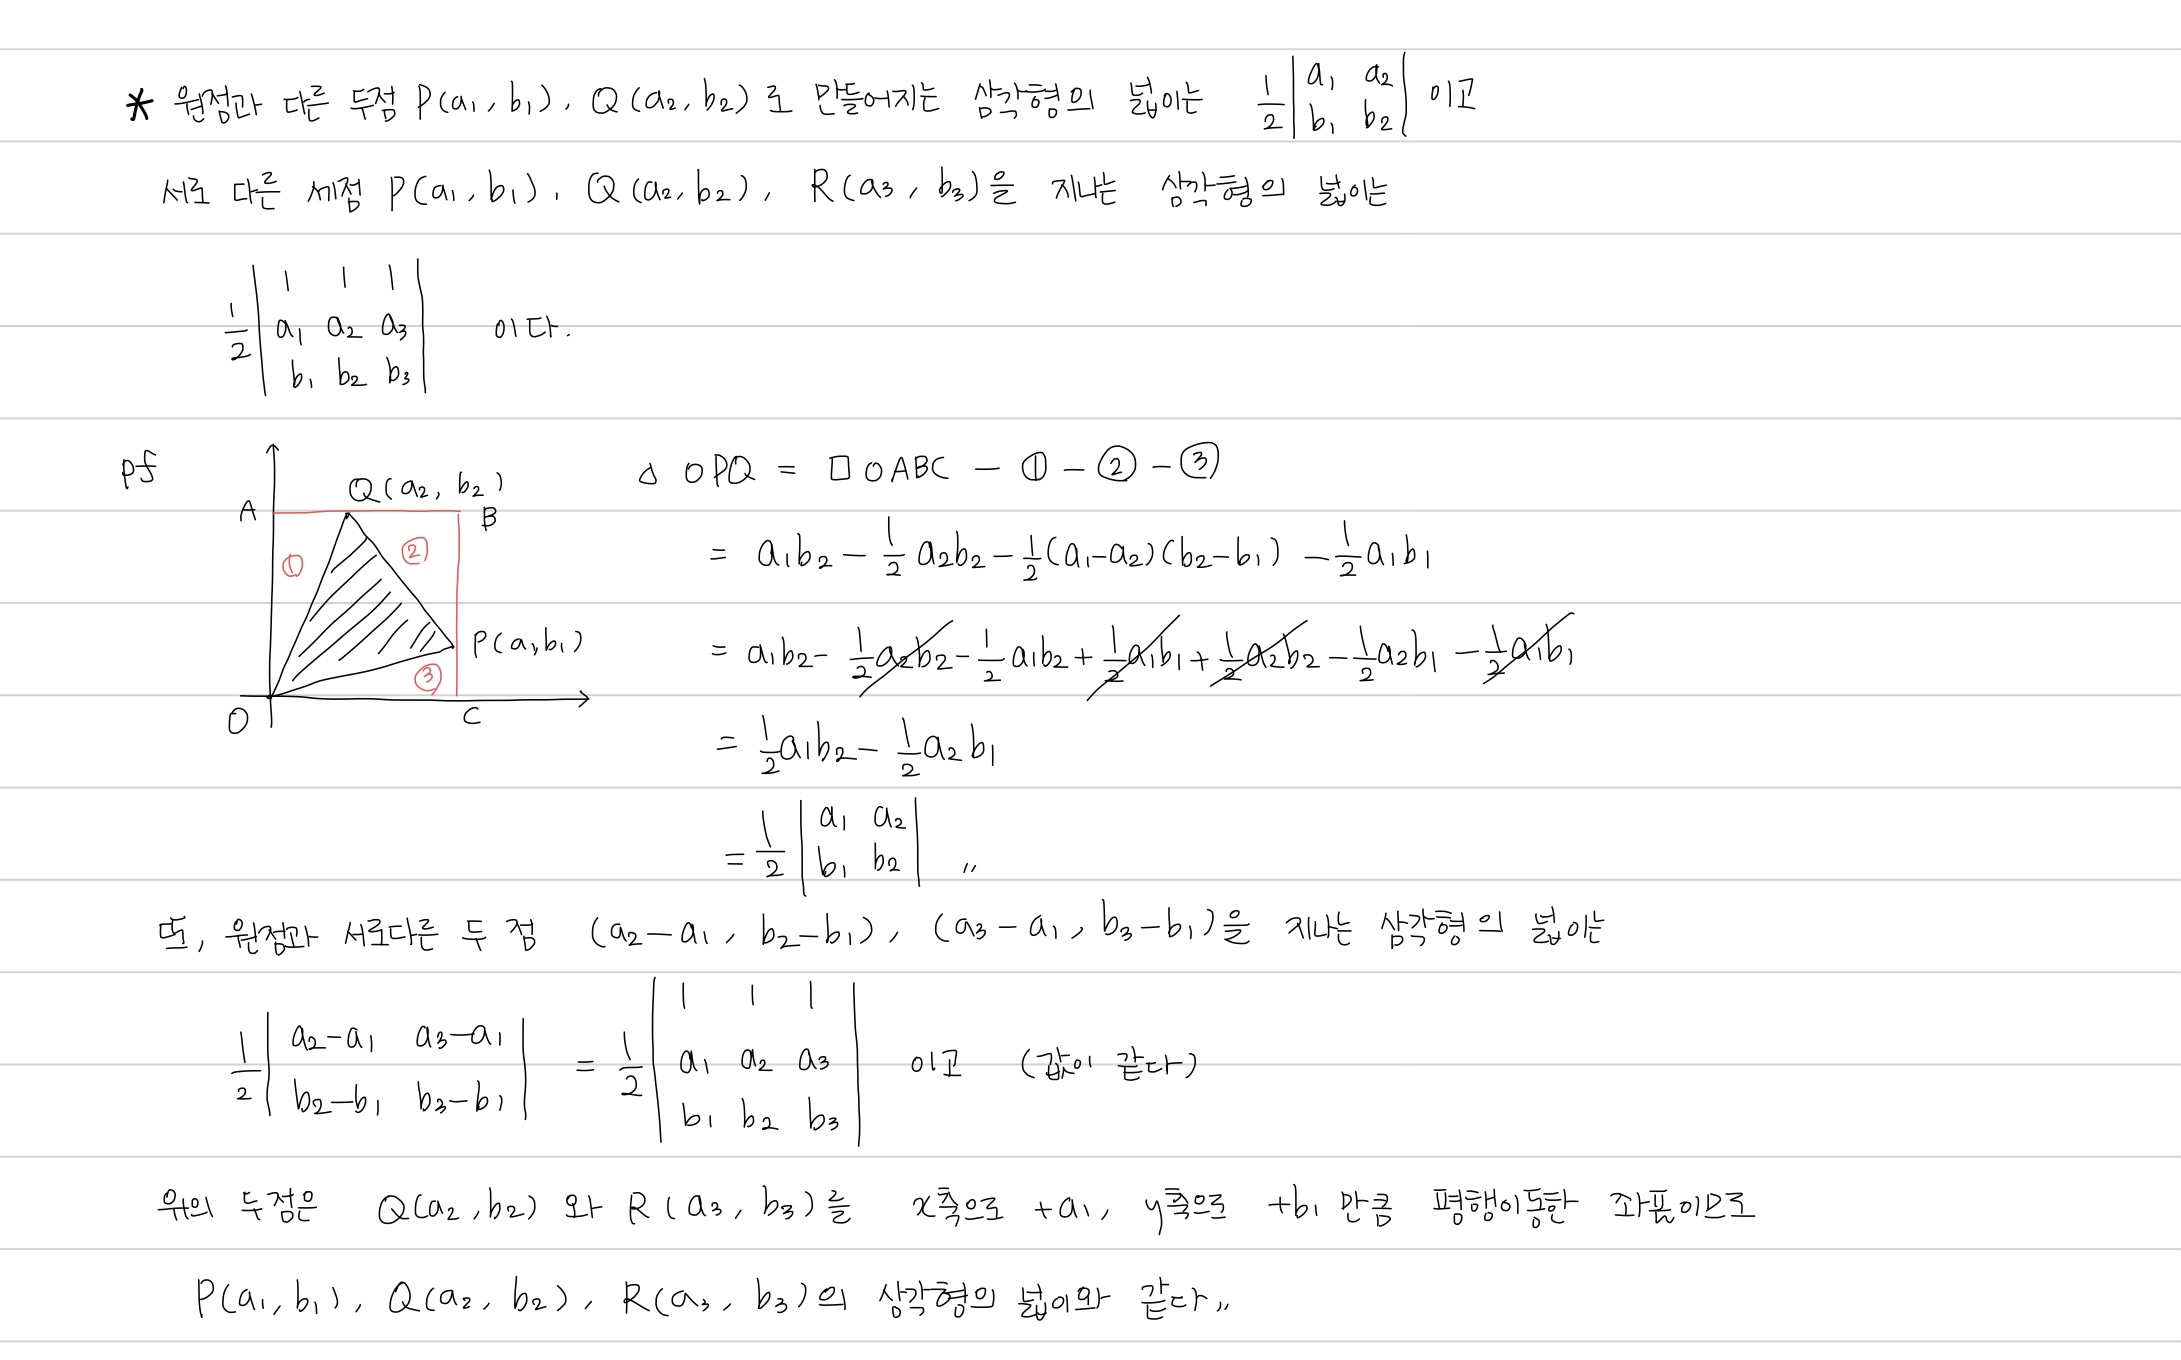 * 원점과 다른 두점 P(a₁, b₁), Q(a₂, b₂)로 만들어지는 삼각형의 넓이는 1/2 |a₁ a₂; b₁ b₂| 이고
서로 다른 세점 P(a₁, b₁), Q(a₂, b₂), R(a₃, b₃)을 지나는 삼각형의 넓이는
1/2 |1 1 1; a₁ a₂ a₃; b₁ b₂ b₃| 이다.
pf
Q(a₂, b₂)
A
B
①
②
P(a₁, b₁)
③
O
C
△OPQ = □OABC - ① - ② - ③
= a₁b₂ - 1/2 a₂b₂ - 1/2(a₁-a₂)(b₂-b₁) - 1/2 a₁b₁
= a₁b₂ - 1/2 a₂b₂ - 1/2 a₁b₂ + 1/2 a₁b₁ + 1/2 a₂b₂ - 1/2 a₂b₁ - 1/2 a₁b₁
= 1/2 a₁b₂ - 1/2 a₂b₁
= 1/2 |a₁ a₂; b₁ b₂| 〃
또, 원점과 서로다른 두 점 (a₂-a₁, b₂-b₁), (a₃-a₁, b₃-b₁)을 지나는 삼각형의 넓이는
1/2 |a₂-a₁ a₃-a₁; b₂-b₁ b₃-b₁| = 1/2 |1 1 1; a₁ a₂ a₃; b₁ b₂ b₃| 이고 (값이 같다)
위의 두점은 Q(a₂, b₂)와 R(a₃, b₃)를 x축으로 +a₁, y축으로 +b₁ 만큼 평행이동한 좌표이므로
P(a₁, b₁), Q(a₂, b₂), R(a₃, b₃)의 삼각형의 넓이와 같다〃